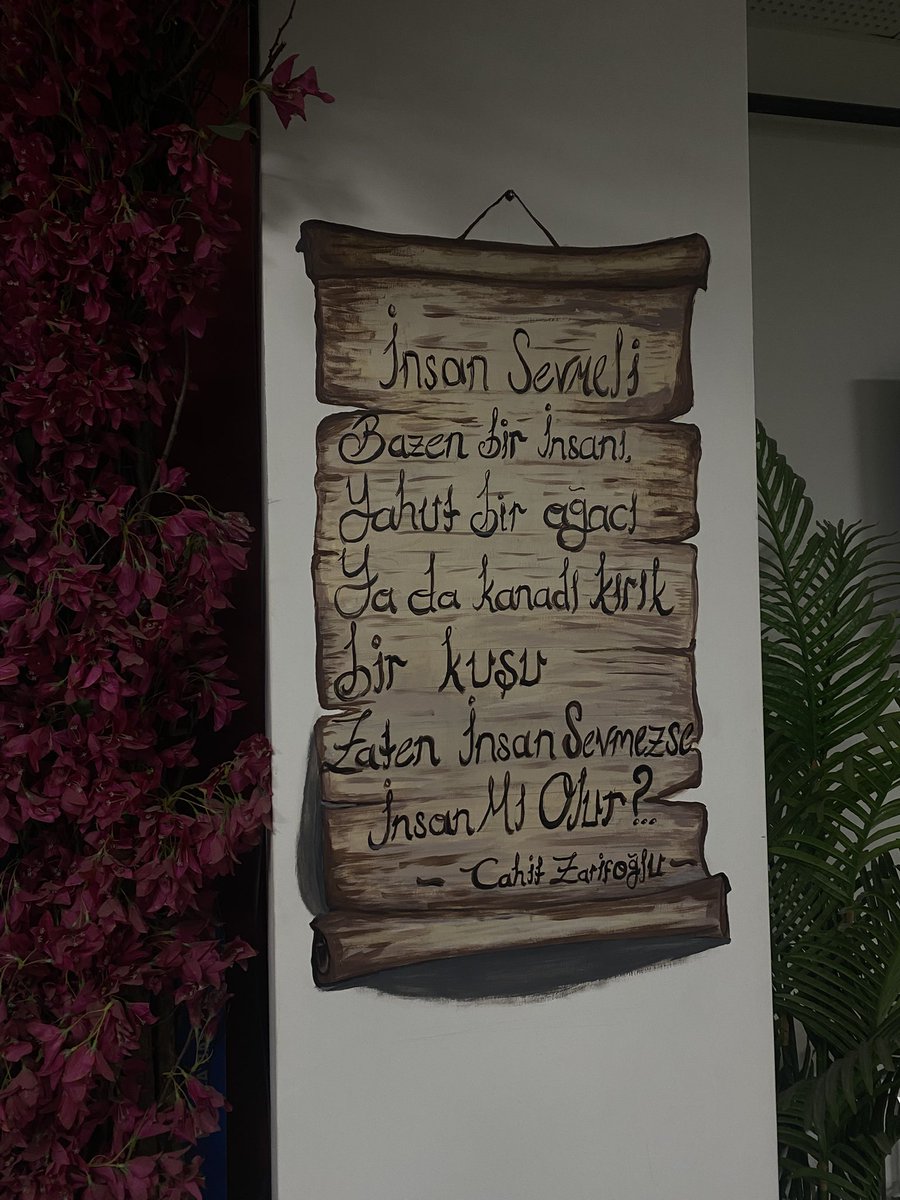 İnsan Sevmeli
Bazen bir İnsanı,
Yahut bir ağacı
Ya da kanadı kırık
bir kuşu
Zaten İnsan Sevmezse
İnsan Mı Olur?...
- Cahit Zarifoğlu -